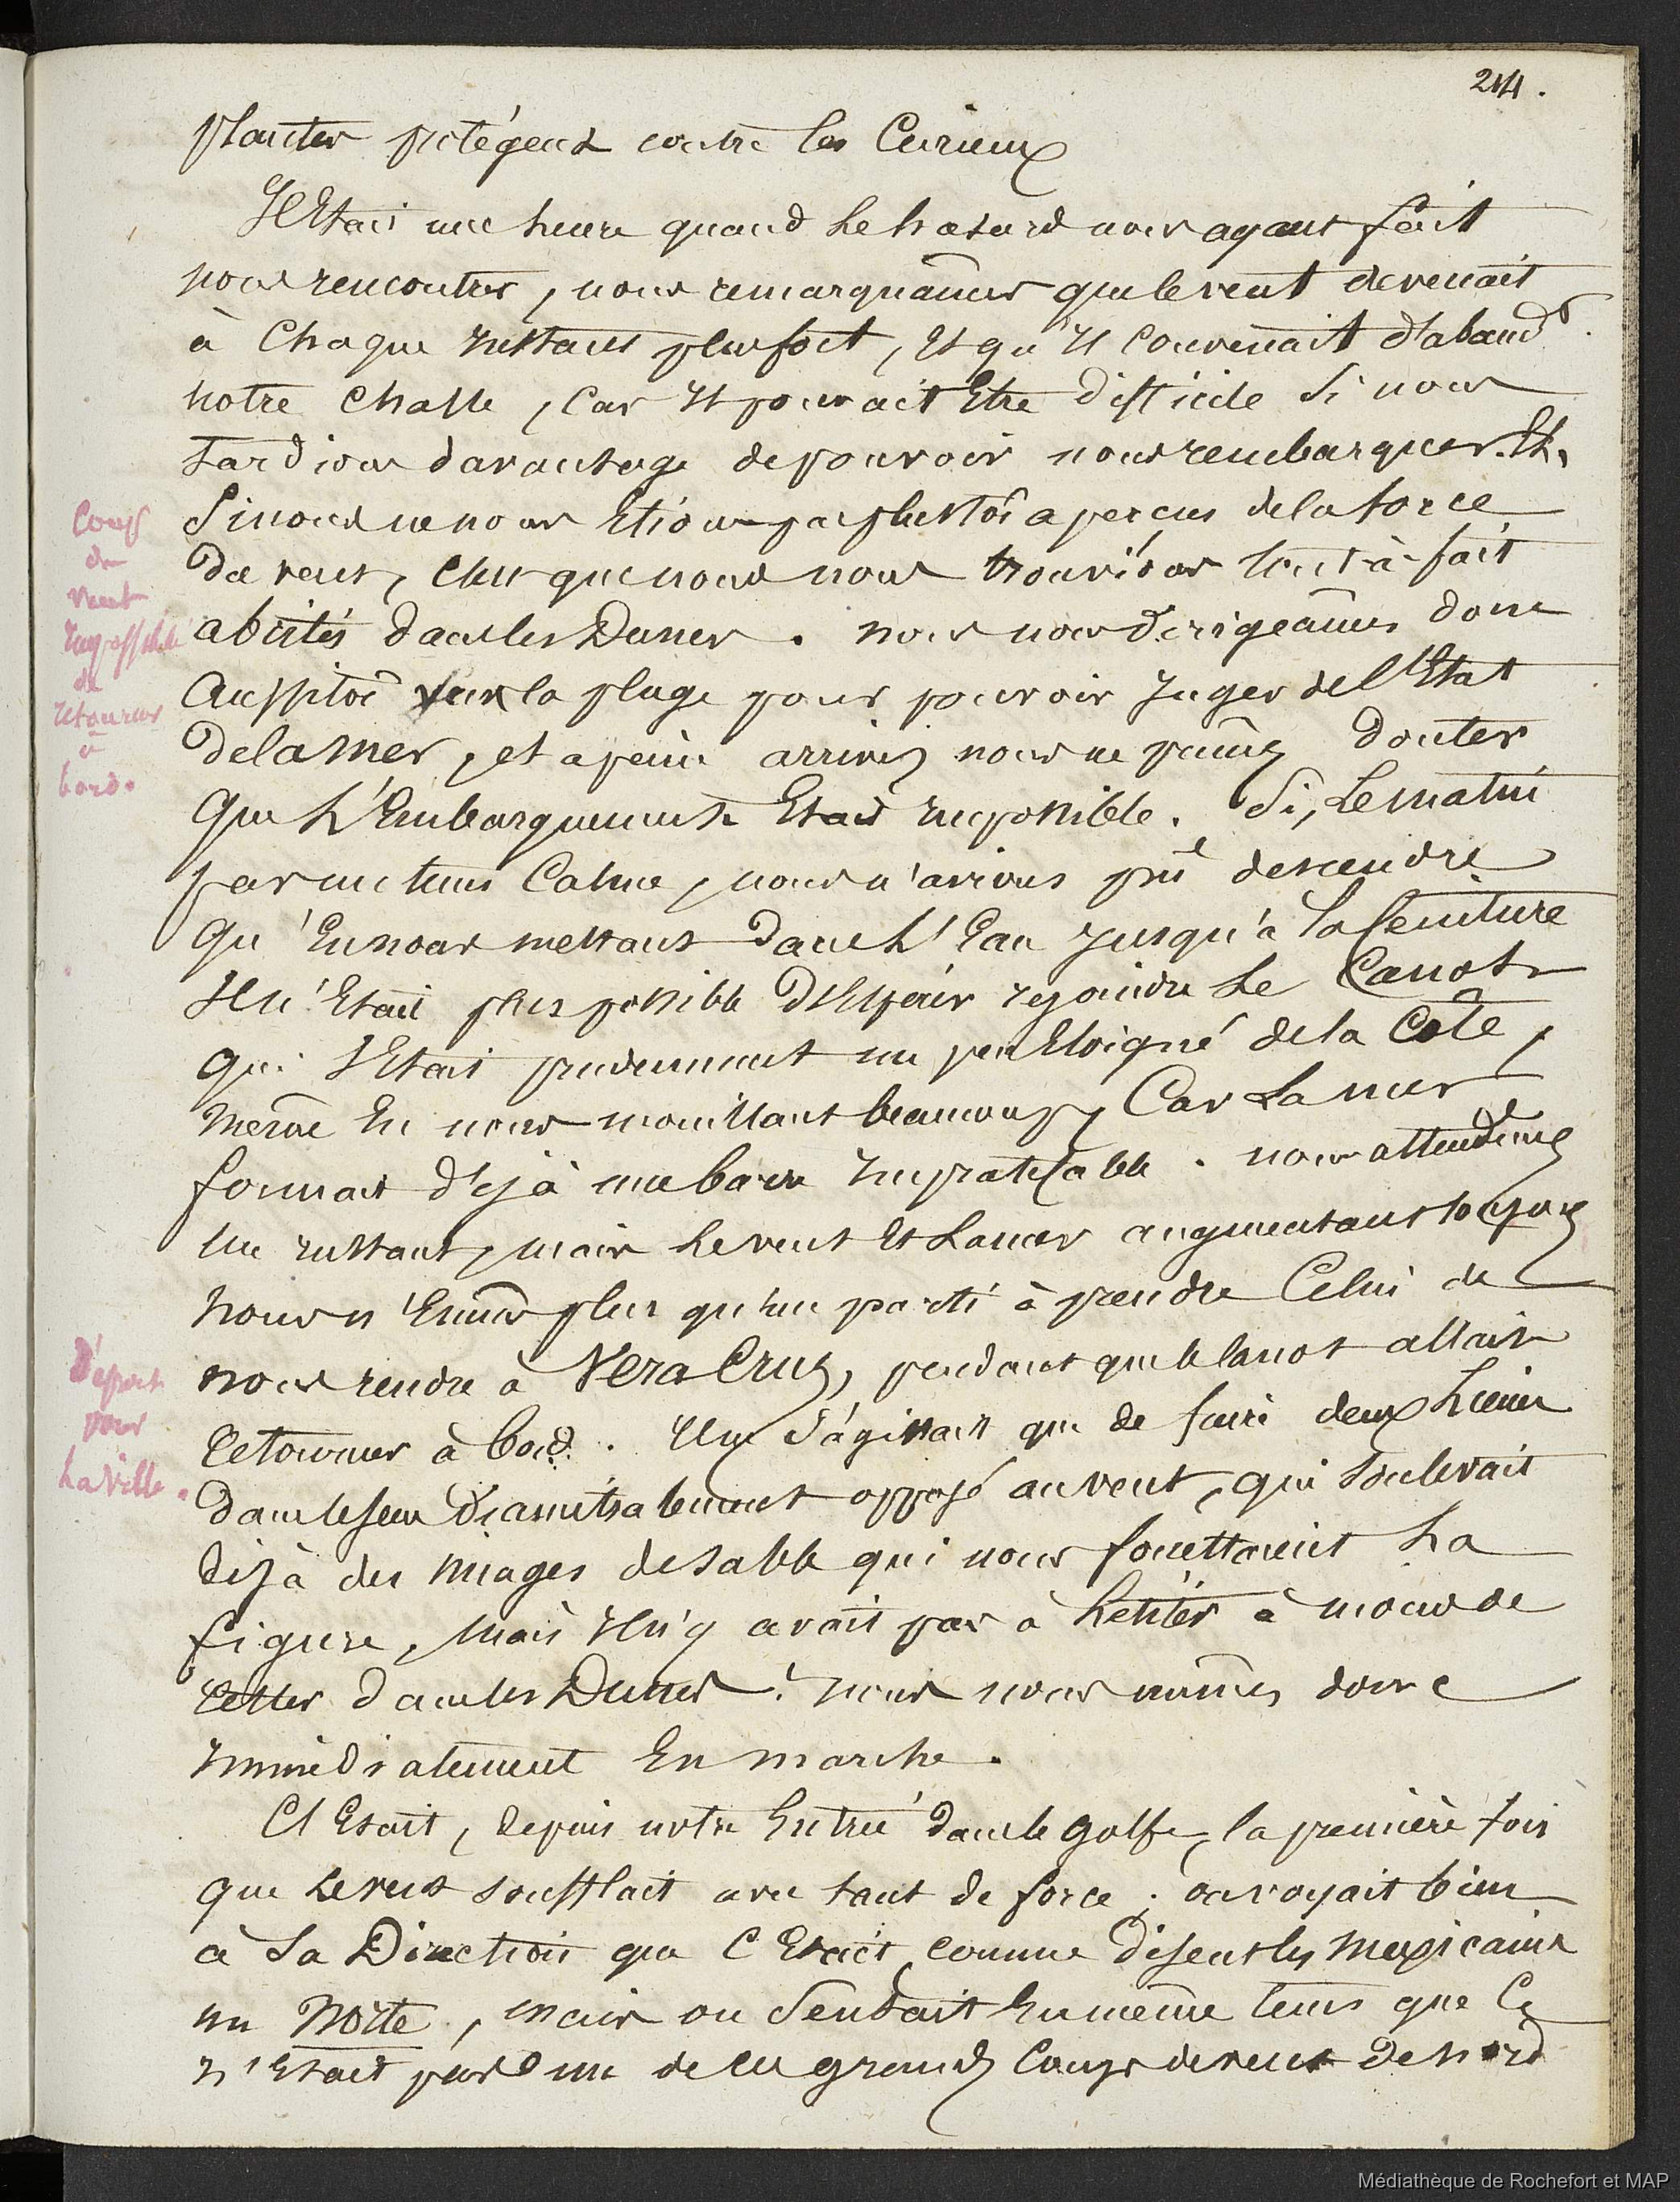 214.
plantes protégeant contre les Curieux
Il Etait une heure quand le hasard nous ayant fait
nous rencontrer, nous remarquâmes que le vent devenait
à chaque instant plus fort, et qu'il convenait d'aband^r
notre chasse, car il pourrait Etre difficile si nous
tardions davantage de pouvoir nous rembarquer. Et,
Si nous ne nous Etions pas plustôt apercus de la force
du vent, c'est que nous nous trouvions tout-à-fait
abrités dans les Dunes. nous nous dirigeâmes donc
aussitôt vers la plage pour pouvoir juger de l'Etat
de la mer, et à peine arrivés nous ne pûmes douter
que L'Embarquement Etait impossible. Si, le matin
par un tems calme, nous n'avions pû descendre
qu'En nous mettant dans L'Eau jusqu'à la ceinture
Il n'Etait plus possible d'Espérer rejoindre le Canot
qui s'Etait prudemment un peu Eloigné de la Cote,
même En nous mouillant beaucoup, Car La mer
formait déjà une barre impraticable. nous attendîmes
un instant, mais le vent et La mer augmentant toujours
nous n'Eumes plus qu'un parti à prendre Celui de
nous rendre à Vera Cruz, pendant que le canot allait
retourner à bord. Il ne s'agissait que de faire deux Lieues
dans le sens diamétralement opposé au vent, qui soulevait
déjà des nuages de sable qui nous fouettaient La
figure, mais il n'y avait pas à hésiter à moins de
rester dans les Dunes. nous nous mimes donc
immédiatement En marche.
C'Etait, depuis notre Entrée dans le golfe, la première fois
que le vent soufflait avec tant de force; on voyait bien
à sa Direction que C'Etait, comme disent les mexicains
un Norte, mais on sentait En même tems que ce
n'Etait pas un de ces grands coups de vent de nord
Coup
de
vent
Impossible
de
retourner
à
bord.
Départ
pour
La Ville.
Médiathèque de Rochefort et MAP